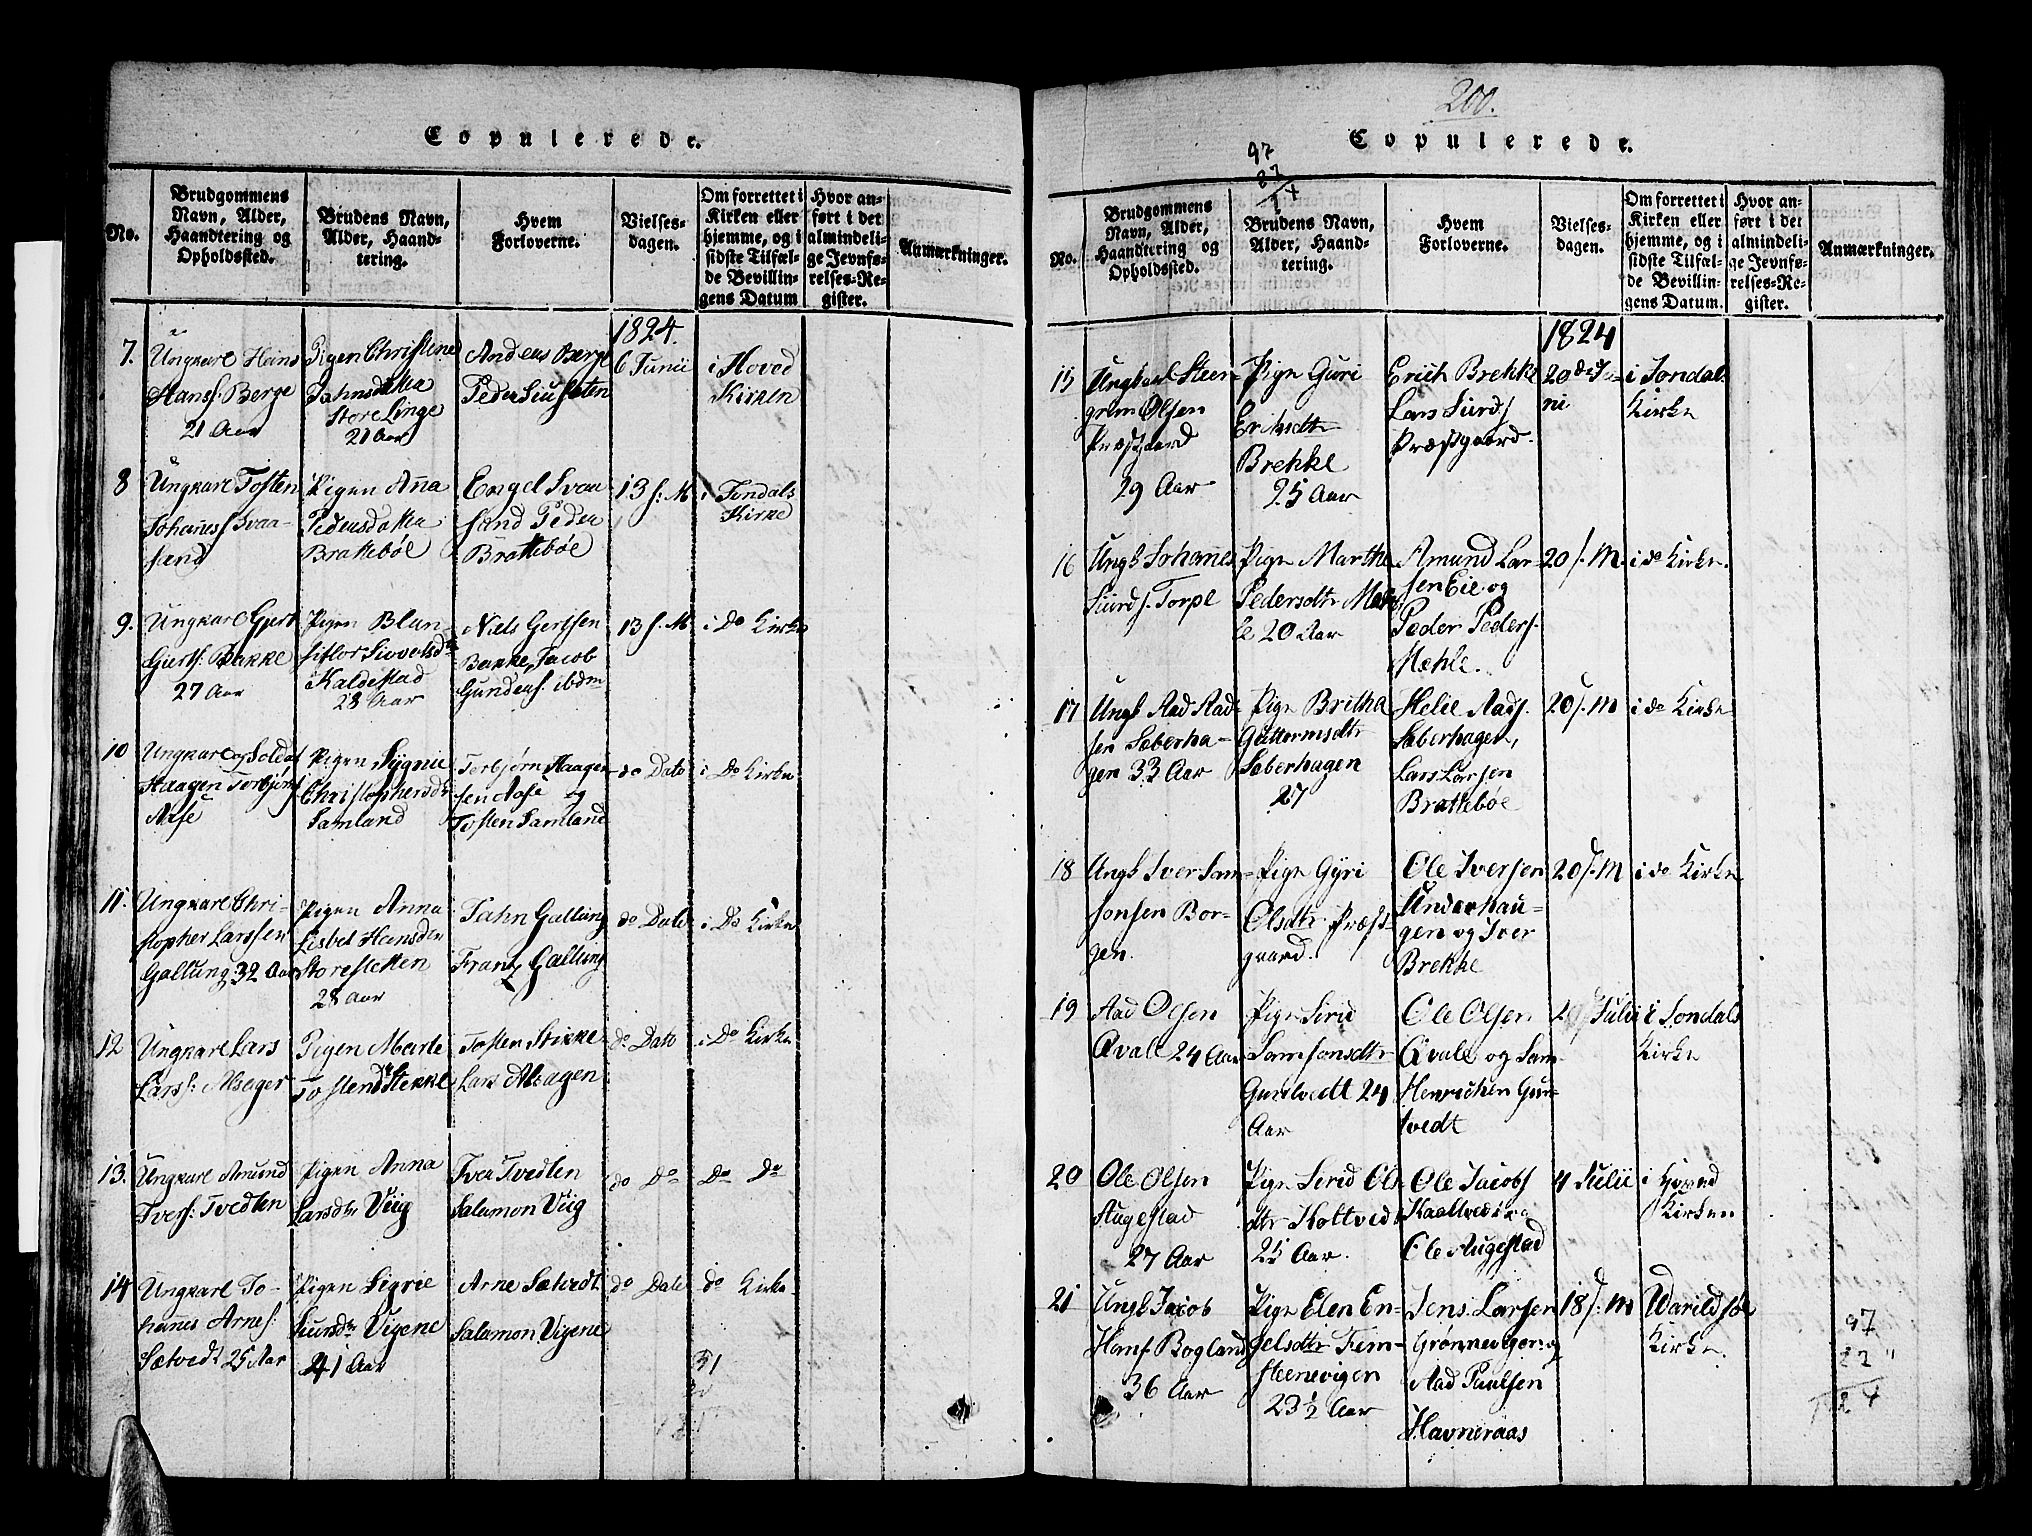 Copulerede.
No.
Brudgommens
Navn, Alder,
Haandtering og
Opholdssted.
Brudens Navn,
Alder, Haand-
tering.
Hvem
Forloverne.
Vielses-
dagen.
Om forrettet i
Kirken eller
hjemme, og i
sidste Tilfæl-
de Bevillin-
gens Datum
Hvor an-
ført i det
almindeli-
ge Jevnfø-
relses-Re-
gister.
Anmærkninger.
1824.
7.
Ungkarl Hans
Hans/: Berge
21 Aar
Pigen Christene
Jahnsdatta
Store Linge
21 Aar
Anders Berge
Peder
6 Junii
i Hoved
Kirken
8
Ungkarl Tosten
Johaness/ Svaa-
sand
Pigen Anna
Pedersdatta
Brattebøe
Engel Svaa
sand Peder
Brattebøe
13 s: M
i Jondals
Kirke
9.
Ungkarl Gjert
Giertf: Bakke
27 Aar
Pigen Blan-
siflor Sivvolsdtr
Kaldestad
28 Aar
Niels Gertsen
Bakke, Jacob
Gunders: ibdm
13 s: M
i Do Kirke
10
Ungkarl og Soldat
Haagen Torbjørns
Aase
Pigen Sygnie
Christophersdtr
Samland
Torbjørn Haagen
sen Aase og
Tosten Samland
do Dato
i Do Kirke
11.
Ungkarl Chri-
stopher Larssen
Galtung 32 Aar
Pigen Anna
Lisbet Hansdtr
Storesletten
28 Aar
Jahn Galtung
Frantz Galtung
do Dato
i Do Kirke
12
Ungkarl Lars
Larss: Alsager
Pigen Marte
Tostendtr Stekke
Tosten Stekke
Lars Alsagen
do Dato
i Do Kirke
13.
Ungkarl Amund
Ivers: Tvedten
Pigen Anna
Larsdtr Viig
Iver Tvedten
Salamon Viig
do Do
Do Do
14
Ungkarl Jo-
hanes Arnes:
Sætvedt 25 Aar
Pigen Sigrie
Siursdtr Vigene
41 Aar
Arne Sætvedt
Salamon Vigene
do Dato
do Kirke
51
200.
Copulerede.
97
27
No.
Brudgommens
Navn, Alder,
Haandtering og
Opholdssted.
Brudens Navn,
Alder, Haand-
tering.
Hvem
Forloverne.
Vielses-
dagen.
Om forrettet i
Kirken eller
hjemme, og i
sidste Tilfæl-
de Bevillin-
gens Datum.
Hvor an-
ført i det
almindeli-
ge Jevnfø-
relses-Re-
gister.
Anmærkninger.
1824
15
Ungkarl Steen-
grim Olsen
Præstgaard
29 Aar
Pign Guri
Erichsdtr
Brekke
25 Aar
Erich Brekke
Lars Siurds/
Præstgaard.
20de Ju-
ni
i Jondal.
Kirke
16
Ungk Johannes
Siurds/. Torpe
Pign Marthe
Pedersdtr Mæh-
le 20 Aar
Amund Lar-
sen Eie og
Peder Peders/.
Mæhle.
20 /. M.
i do Kirke.
17
Ungk Aad Aad-
sen Sæberha-
gen 33 Aar
Pign Britha
Guttormsdtr
Sæberhagen
27
Helie Aads/.
Sæberhagen,
Lars Larsen
Brattebøe
20 /. M
i do Kirke
18
Ungk Iver Sam-
sonsen Bor-
gen.
Pign Gyri
Olsdtr Præst-
gaard.
Ole Iversen
Underhau-
gen og Iver
Brekke
20 /. M
i do Kirke
19
Aad Olsen
Qvale 24 Aar
Pign Sirid
Samsonsdtr
Guntvedt 24
Aar
Ole Olsen
Qvale og Sam
Henrichsen Gun-
tvedt
Julii
i Jondals
Kirke
20
Ole Olsen
Augestad
27 Aar
Pign Sirid Ols-
dtr Holtvedt
25 Aar.
Ole Jacobs/
og
Ole Augestad
4 Julii
i Hoved
Kirken
21
Ungk Jacob
Hans/ Bogland
36 Aar
Pign Elen En-
gelsdtr Fem-
steenevigen
23 ½ Aar
Jens Larsen
Grønnevigen og
Aad Paulsen
Havneraas
18 /. M
Warildsøe
Kirke.
97
27 "